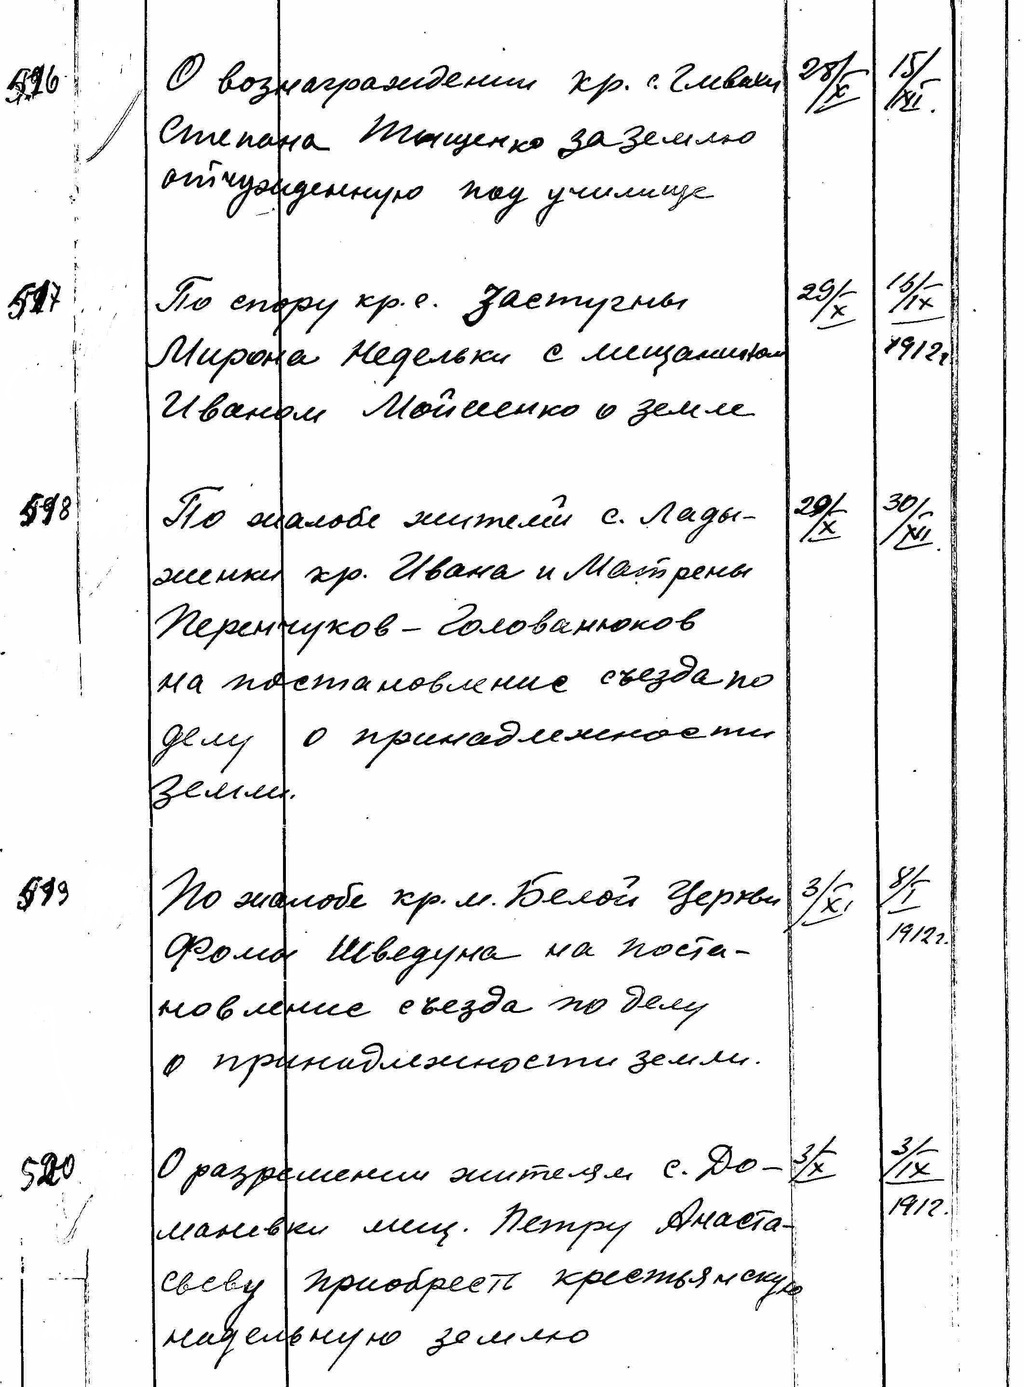 516 О вознаграждении кр. с. Глевахи 28/X 15/XI.
Степана Тищенко за землю
отчужденную под училище
517 По спору кр. с. Застугны 29/X 16/IX
Мирона Недельки с мещанином 1912г
Иваном Мойсеенко о земле
518 По жалобе жителей с. Лады- 29/X 30/XII.
женки кр. Ивана и Матрены
Перенчуков - Голованюков
на постановление съезда по
делу о принадлежности
земли.
519 По жалобе кр. м. Белой Церкви 3/XI 8/I
Фомы Шведуна на поста- 1912г.
новление съезда по делу
о принадлежности земли.
520 О разрешении жителям с. До- 3/X 3/IX
маневки мещ. Петру Анаста- 1912.
сьеву приобресть крестьянскую
надельную землю